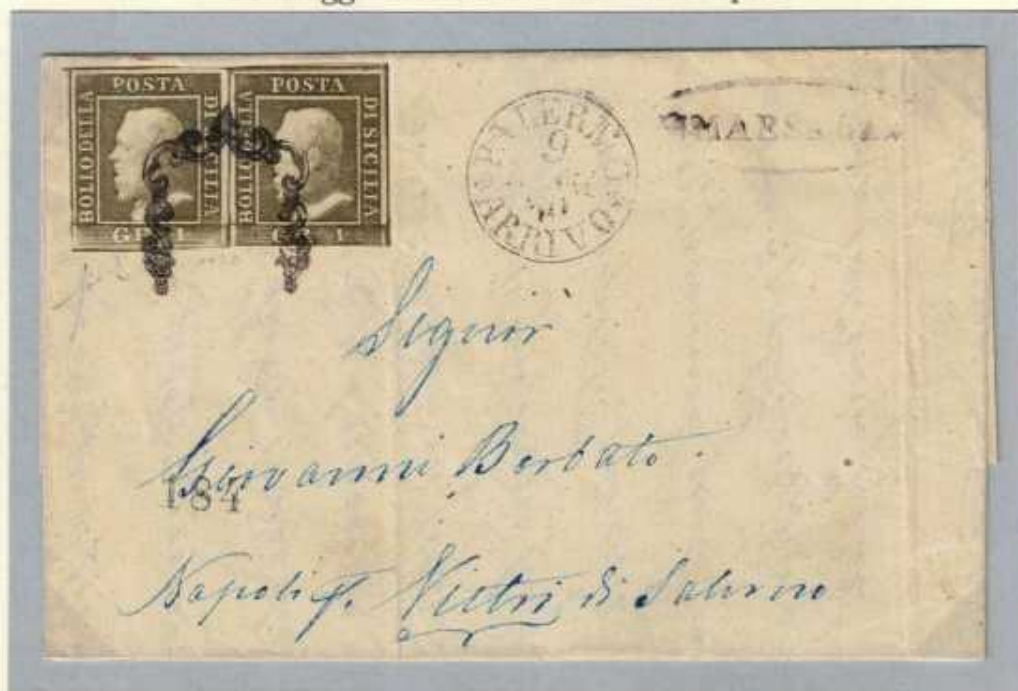 BOLLO DELLA POSTA DI SICILIA
GR. 1
BOLLO DELLA POSTA DI SICILIA
GR. 1
PALERMO
9
ARRIVO
Signor
Giovanni Borbato
184
Napoli p. Vietri di Salerno